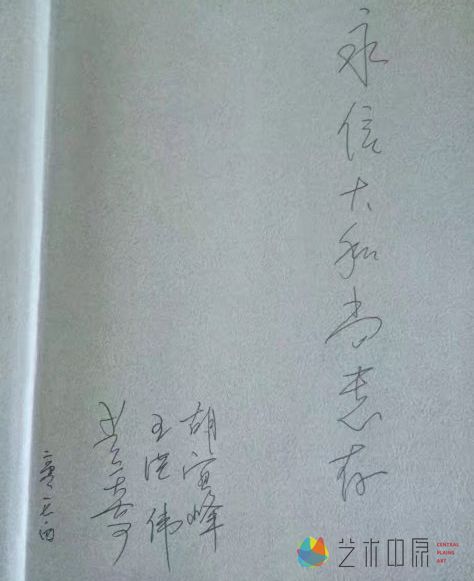 永信大和尚惠存
胡峰
王洪伟
艺术中原
CENTRAL
PLAINS
ART